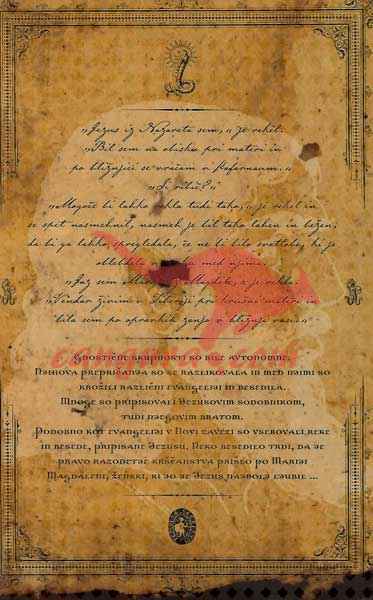 „Jezus iz Nazareta sem,“ je rekel.
„Bil sem na obisku pri materi in
po bližnjici se vračam v Kafarnaum.“
„Si ribič?“
„Mogoče bi lahko rekla tudi tako,“ je rekel in
se spet nasmehnil, nasmeh je bil tako lahen in bežen,
da bi ga lahko spregledala, če ne bi bilo svetlobe, ki je
„Jaz sem Magdale,“ je rekla.
„Vendar živim v Tiberiji pri materi in
bila sem po opravkih zanjo v bližnji vasi.“
Gnostične skupnosti so bile avtonomne.
Njihova prepričanja so se razlikovala in med njimi so
krožili različni evangeliji in besedila.
Mnoge so pripisovali Jezusovim sodobnikom,
tudi njegovim bratom.
Podobno kot evangeliji v Novi zavezi so vsebovali reke
in besede, pripisane Jezusu. Neko besedilo trdi, da je
pravo razodetje krščanstva prišlo po Mariji
Magdaleni, ženski, ki jo je Jezus najbolj ljubil ...